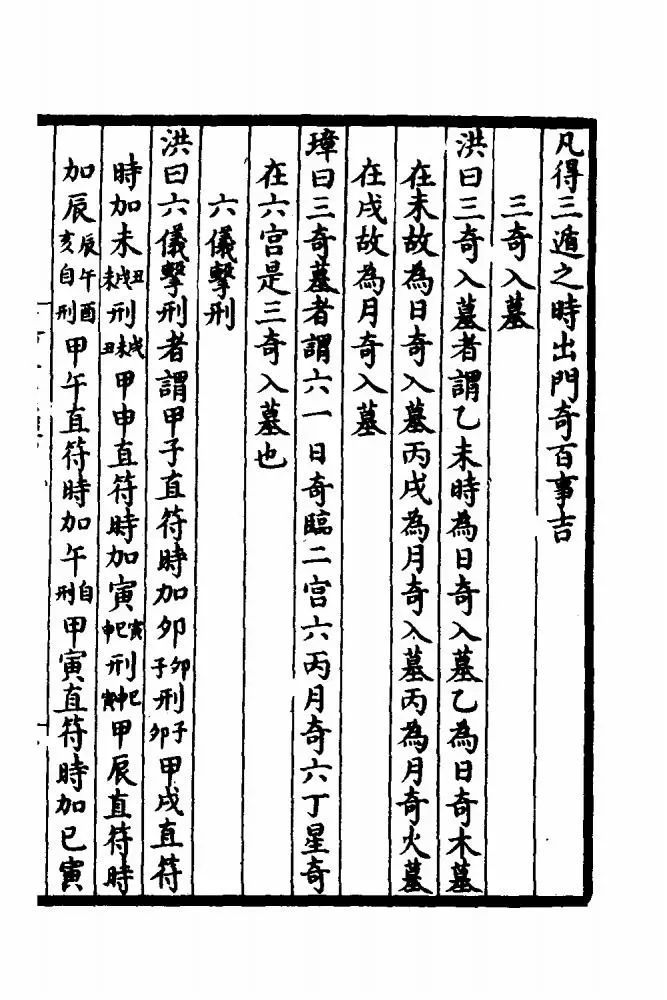 凡得三遁之時出門奇百事吉
三奇入墓
洪曰三奇入墓者謂乙未時為日奇入墓乙為日奇木墓
在未故為日奇入墓丙戌為月奇入墓丙為月奇火墓
在戌故為月奇入墓
璋曰三奇墓者謂六一日奇臨二宫六丙月奇六丁星奇
在六宫是三奇入墓也
六儀擊刑
洪曰六儀擊刑者謂甲子直符時加卯卯子刑子卯甲戌直符
時加未丑戌未刑戌未丑甲申直符時加寅寅巳申刑巳申寅甲辰直符時
加辰辰午酉亥自刑甲午直符時加午自刑甲寅直符時加巳寅